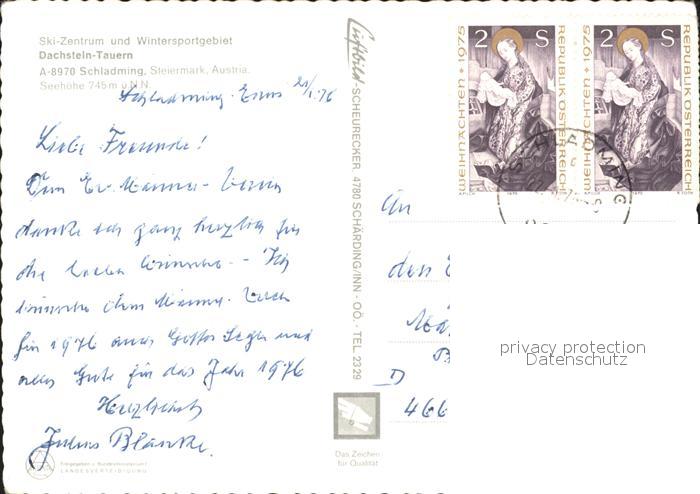 Ski-Zentrum und Wintersportgebiet
Dachstein-Tauern
A-8970 Schladming, Steiermark, Austria.
Seehöhe 745 m ü. N. N.
Schladming-Enns
Liebe Freunde!
Dem Ev. Männer-
danke ich ganz herzlich für
die lieben Wünsche. - Ich
wünsche dem Männer
für 1976 Gottes Segen und
alles Gute für das Jahr 1976
Herzlichst
Julius Blanke.
Freigegeben v. Bundesministerium f.
LANDESVERTEIDIGUNG
Luftbild-SCHEURECKER 4780 SCHÄRDING/INN - OÖ. - TEL. 2329
Das Zeichen
für Qualität
WEIHNACHTEN + 1975
2 S
REPUBLIK ÖSTERREICH
WEIHNACHTEN + 1975
2 S
REPUBLIK ÖSTERREICH
SCHLADMING
An
den
D
466
privacy protection
Datenschutz